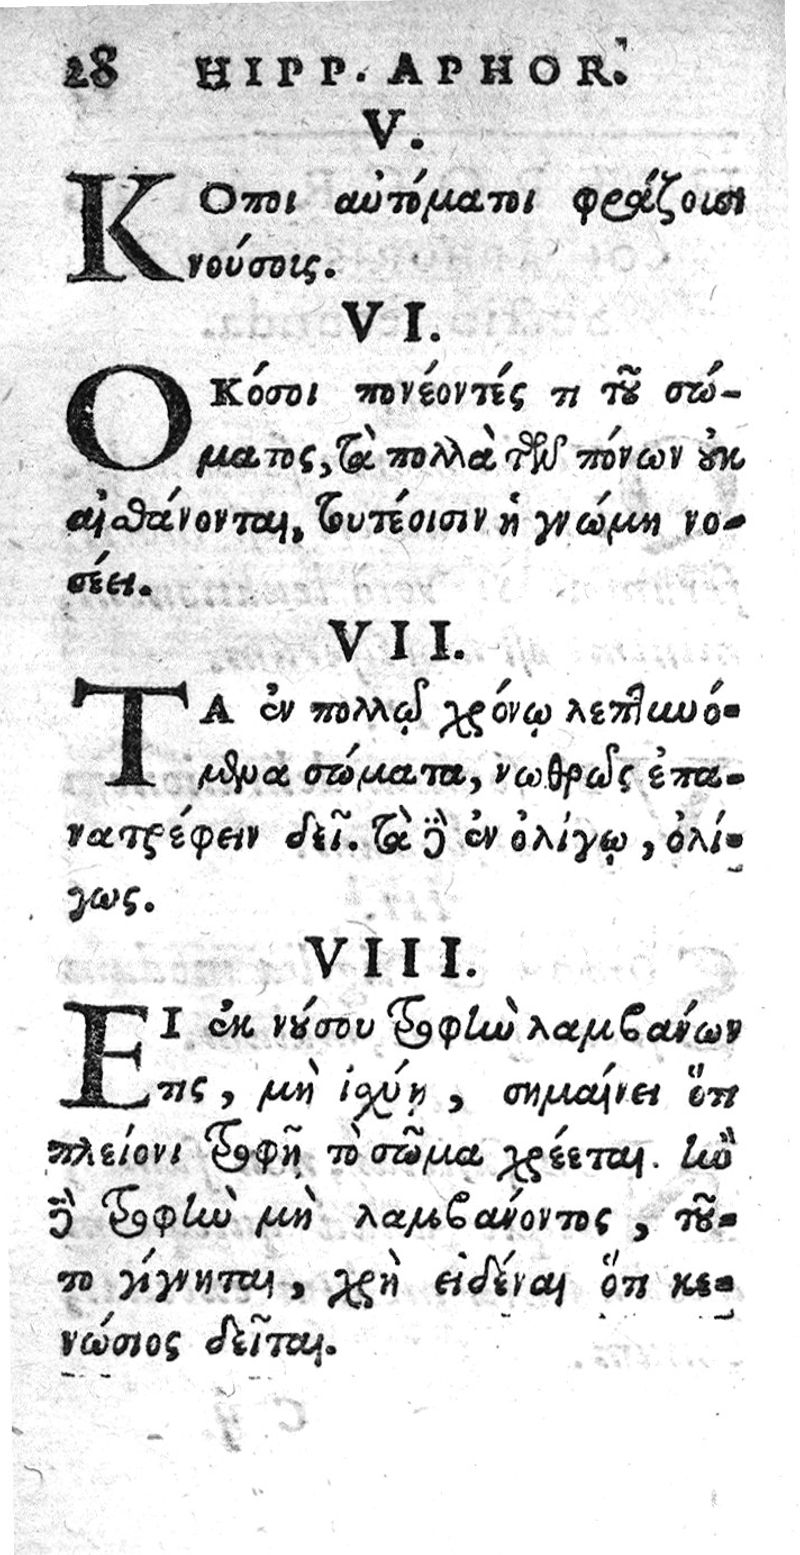 28 HIPP. APHOR.
V.
ΚΟποι αὐτόματοι φράζουσι
νούσοις.
VI.
ΟΚόσοι πονέοντές τι τοῦ σώ-
ματος, τὰ πολλὰ τῶν πόνων οὐκ
αἰσθάνονται, τουτέοισιν ἡ γνώμη νο-
σέει.
VII.
ΤΑ ἐν πολλῷ χρόνῳ λεπτυνό-
μενα σώματα, νωθρῶς ἐπα-
νατρέφειν δεῖ. τὰ δὲ ἐν ὀλίγῳ, ὀλί-
γως.
VIII.
ΕΙ ἐκ νούσου τροφὴν λαμβάνων
τις, μὴ ἰσχύῃ, σημαίνει ὅτι
πλείονι τροφῇ τὸ σῶμα χρέεται. ἢν
δὲ τροφὴν μὴ λαμβάνοντος, τοῦ-
το γίγνηται, χρὴ εἰδέναι ὅτι κε-
νώσιος δεῖται.